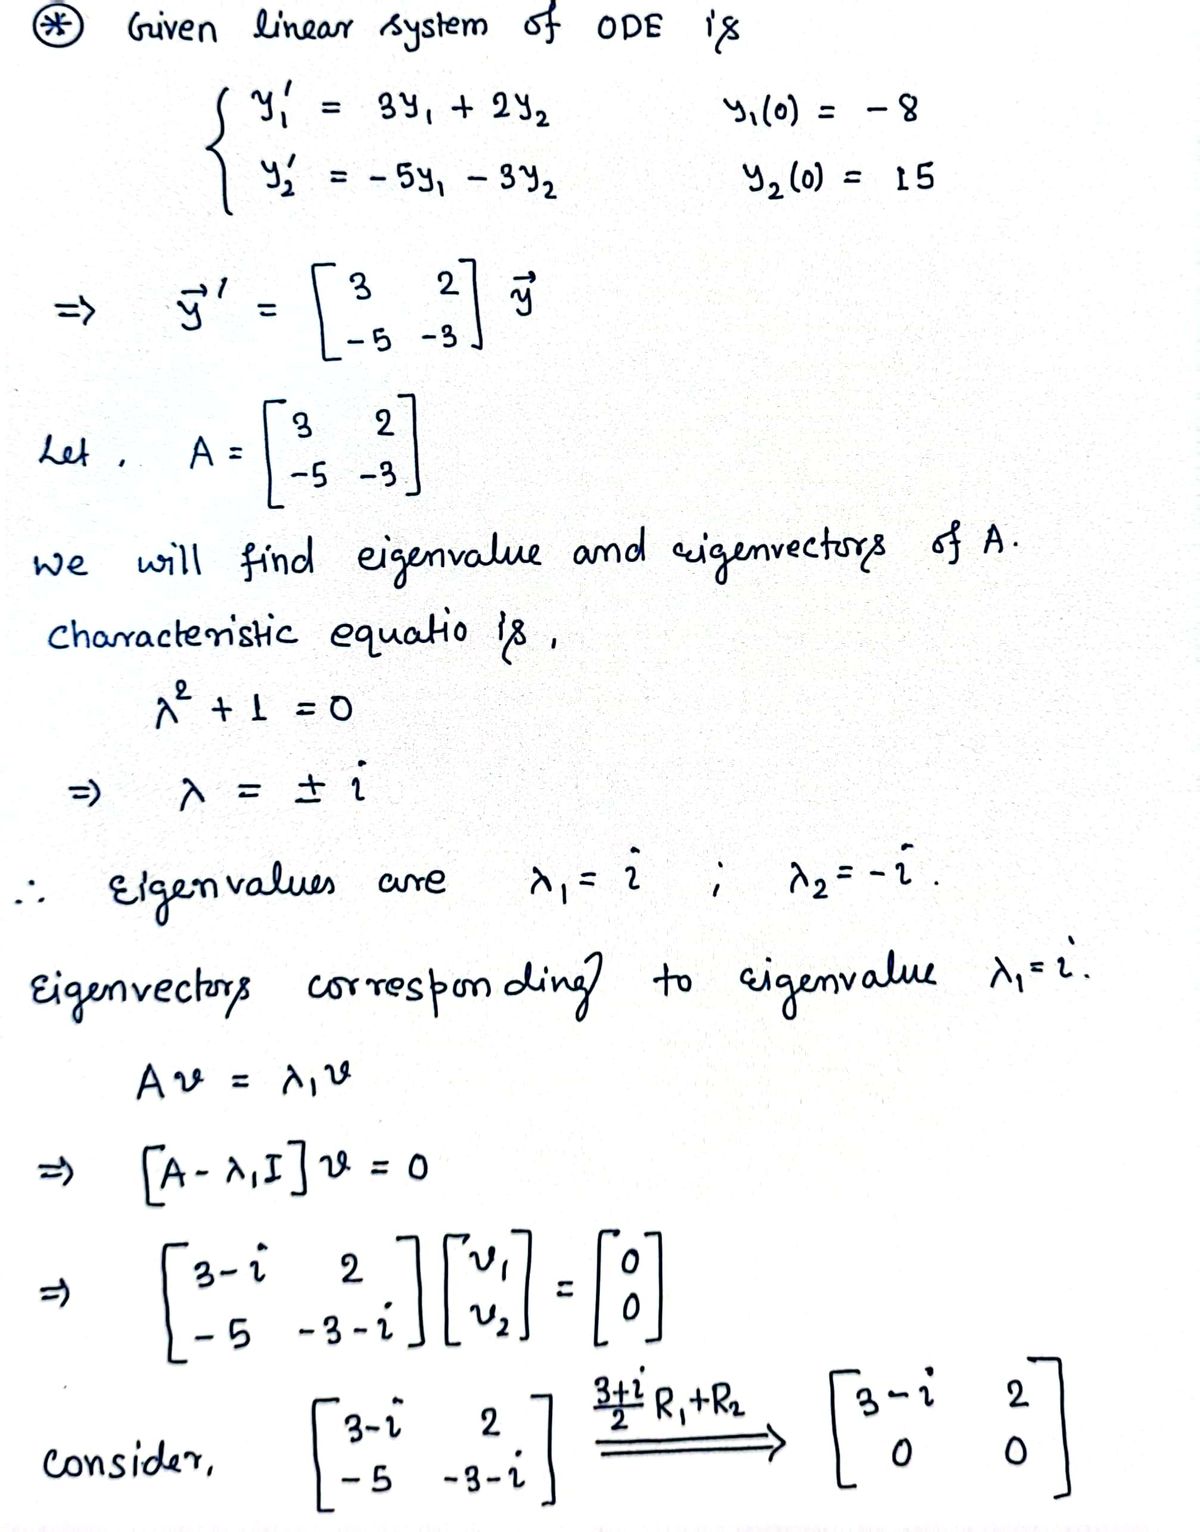 ⊛ Given linear system of ODE is
{ y₁' = 3y₁ + 2y₂    y₁(0) = -8
y₂' = -5y₁ - 3y₂    y₂(0) = 15
⇒ y⃗' = [3 2; -5 -3] y⃗
Let, A = [3 2; -5 -3]
we will find eigenvalue and eigenvectors of A.
characteristic equatio is,
λ² + 1 = 0
⇒ λ = ± i
∴ Eigenvalues are λ₁ = i ; λ₂ = -i.
Eigenvectors corresponding to eigenvalue λ₁ = i.
Av = λ₁v
⇒ [A - λ₁I] v = 0
⇒ [3-i 2; -5 -3-i] [v₁; v₂] = [0; 0]
consider, [3-i 2; -5 -3-i] (3+i)/2 R₁+R₂ ⟹ [3-i 2; 0 0]